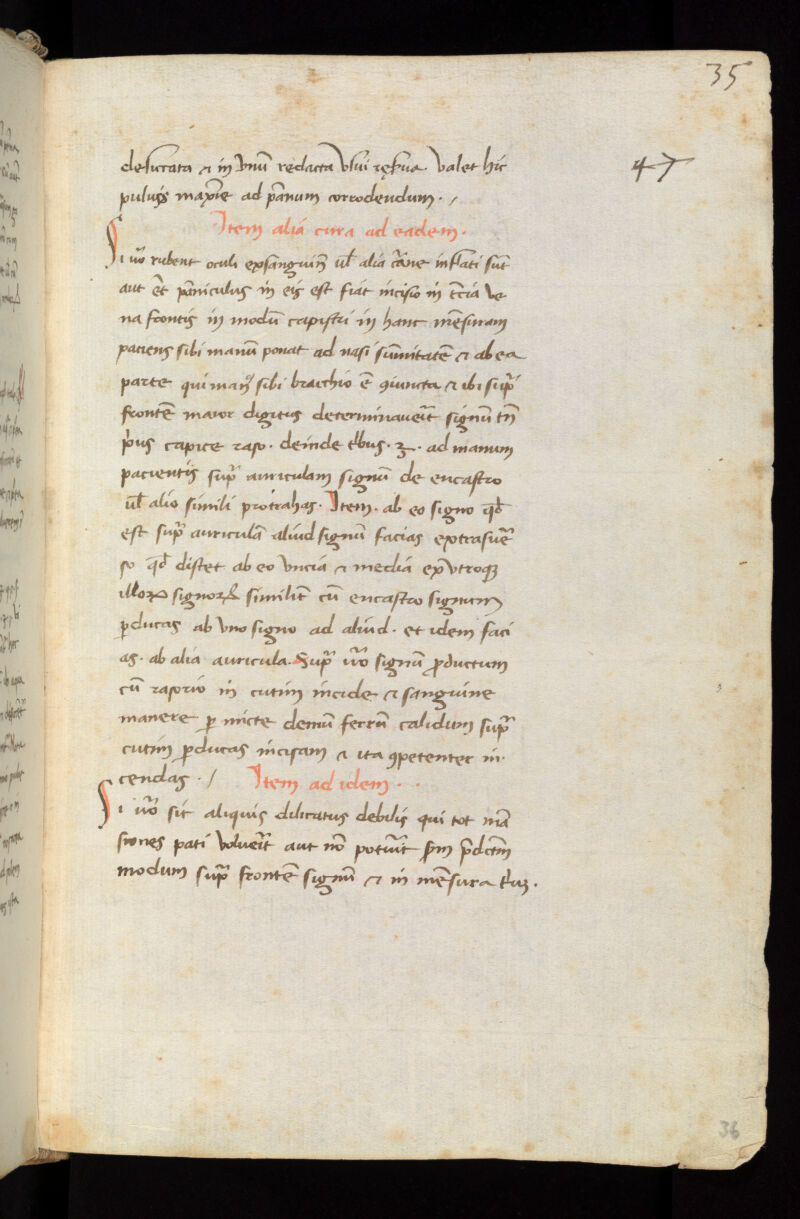 35
47
desiccata & in vnū redacta vsui reserua. Valet hic
puluis maxīe ad pānum corrodendum. /
Item alia cura ad eadem.
Si ṽo rubent oculi ex sanguīe ūl alia cāne inflati sūt
aut ēt pāniculus in eis est fiat incisio in t̄cia ve
na frontis in modū capistri in hanc mēsuram
patiens sibi manū ponat ad nasi sūmitatē & ab ea
parte qui man9 sibi brachio ē 9iuncta & ibi sup̄
frontē maior digitus determinauerīt signū tn̄
p̄us capite raso. deinde t̄bus. 3. ad manum
pacientis sup̄ auriculam signū de encastro
ūl alio simili protrahas. Item. ab eo signo qd̄
est sup̄ auriculā aliud signū facias extrasuer̄
so qd̄ distet ab eo vncia & media ex vtroq3
illoꝝ signoꝝ similit̄ cū encastro signum
ꝑducas ab vno signo ad aliud. et idem faci
as. ab alia auricula. Sup̄ ṽo signū ꝓductum
cū rasorio in cutim incide & sanguine
manere ꝑmicte demū ferrū calidum sup̄
cutim ꝑducas incisam & ita 9petenter in
cendas. / Item ad idem. .
Si ṽo sit aliquis dilicatus debilis qui tot mā
siones pati voluer̄it aut nō potuer̄it p̄dictm̄
modum sup̄ frontē signū & in mēsura
36